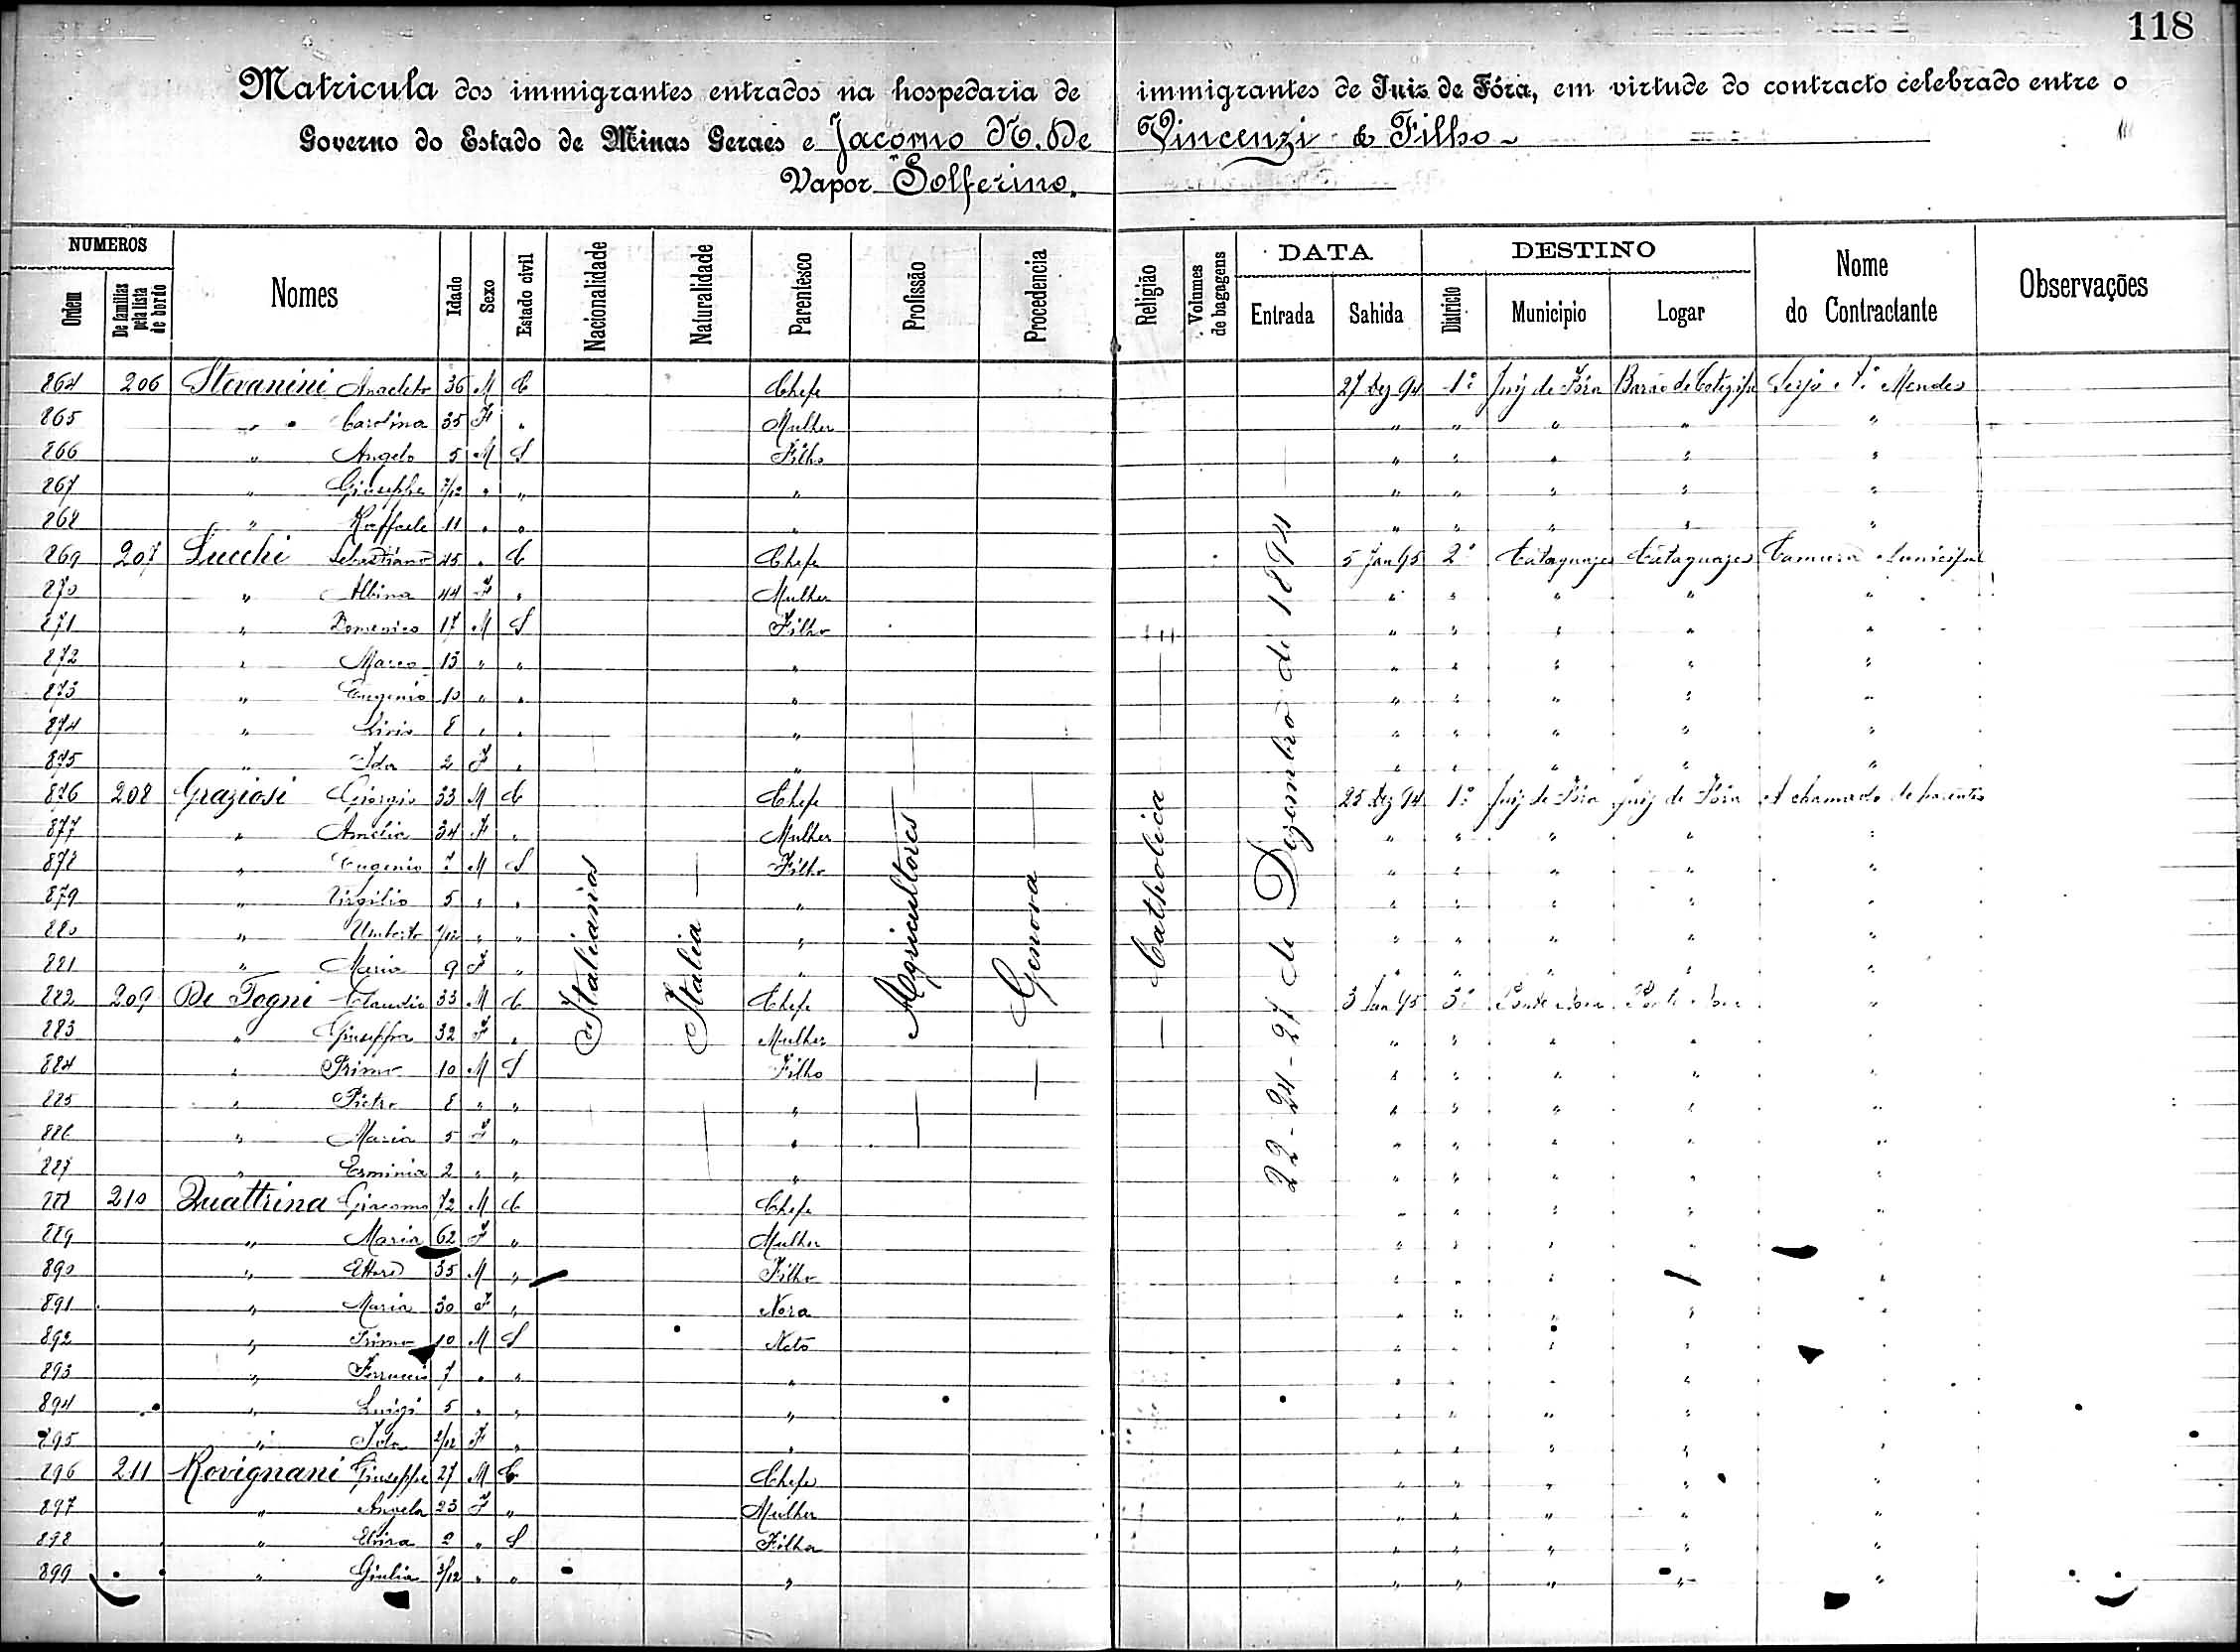 118
Matricula dos immigrantes entrados na hospedaria de immigrantes de Juiz de Fóra, em virtude do contracto celebrado entre o
Governo do Estado de Minas Geraes e Jacomo N. De Vincenzi & Filho
Vapor "Solferino"
NUMEROS Nomes Idade Sexo Estado civil Nacionalidade Naturalidade Parentesco Profissão Procedencia Religião Volumes de bagagens DATA DESTINO Nome do Contractante Observações
Ordem De familias pela lista de bordo Entrada Sahida Districto Municipio Logar
Italianos Italia Agricultores Genova Catholica 22-24-27 de Dezembro de 1894
864 206 Stevanini Anacleto 36 M C Chefe 27 Dez 94 1º Juiz de Fóra Barão de Cotegipe Mendes
865 " Carolina 35 F " Mulher " " " " "
866 " Angelo 5 M S Filho " " " " "
867 " Giuseppe 7/12 " " " " " " " "
868 " Raffaele 11 " " " " " " " "
869 207 Lucchi Sebastiano 45 " C Chefe 5 Jan 95 2º Cataguazes Cataguazes Camara Municipal
870 " Albina 44 F " Mulher " " " " "
871 " Domenico 17 M S Filho " " " " "
872 " Marco 13 " " " " " " " "
873 " Eugenio 10 " " " " " " " "
874 " Livio 8 " " " " " " " "
875 " Ida 2 F " " " " " " "
876 208 Graziosi Giorgio 33 M C Chefe 25 Dez 94 1º Juiz de Fóra Juiz de Fóra A chamado de parentes
877 " Amelia 34 F " Mulher " " " " "
878 " Eugenio 7 M S Filho " " " " "
879 " Virgilio 5 " " " " " " " "
880 " Umberto 1/12 " " " " " " " "
881 " Maria 9 F " " " " " " "
882 209 De Togni Claudio 33 M C Chefe 3 Jan 95 3º Ponte Nova Ponte Nova "
883 " Giuseppa 32 F " Mulher " " " " "
884 " Primo 10 M S Filho " " " " "
885 " Pietro 8 " " " " " " " "
886 " Maria 5 F " " " " " " "
887 " Erminia 2 " " " " " " " "
888 210 Quattrina Giacomo 72 M C Chefe " " " " "
889 " Maria 62 F " Mulher " " " "
890 " Ettore 35 M " Filho " " " " "
891 " Maria 30 F " Nora " " " " "
892 " Primo 10 M S Neto " " " "
893 " Ferruccio 7 " " " " " " " "
894 " Luigi 5 " " " " " " " "
895 " Ida 2/12 F " " " " " " "
896 211 Rovignani Giuseppe 27 M C Chefe " " " " "
897 " Angela 23 F " Mulher " " " " "
898 " Elvira 2 " S Filha " " " " "
899 " Giulia 3/12 " " " " " " " "